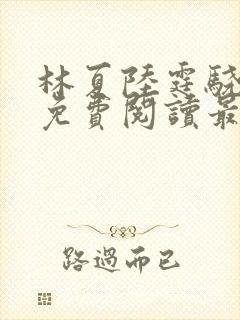 林夏陸霆驍
免費閱讀最
路過而已